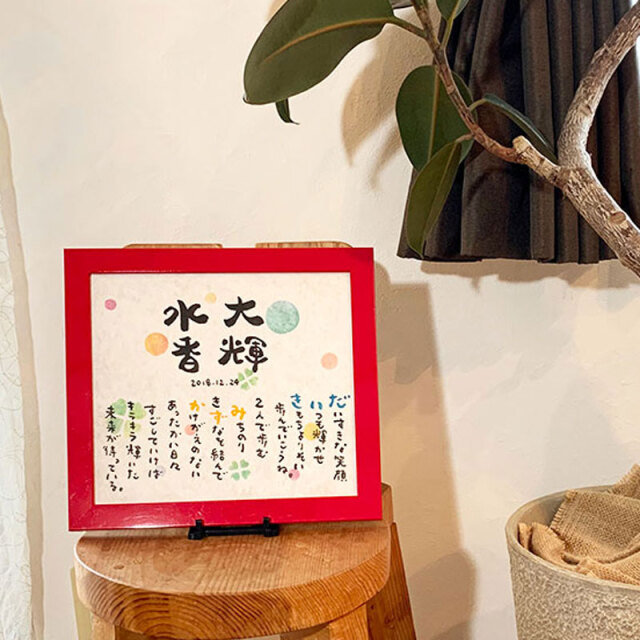 大輝
水香
2018.12.24
だいすきな笑顔
いつも輝かせ
きもちよりそい
歩んでいこうね。
2人で歩む
みちのり
きずなを結んで
かけがえのない
あたたかい日々
すごしていけば
きらきら輝いた
未来が待っている。